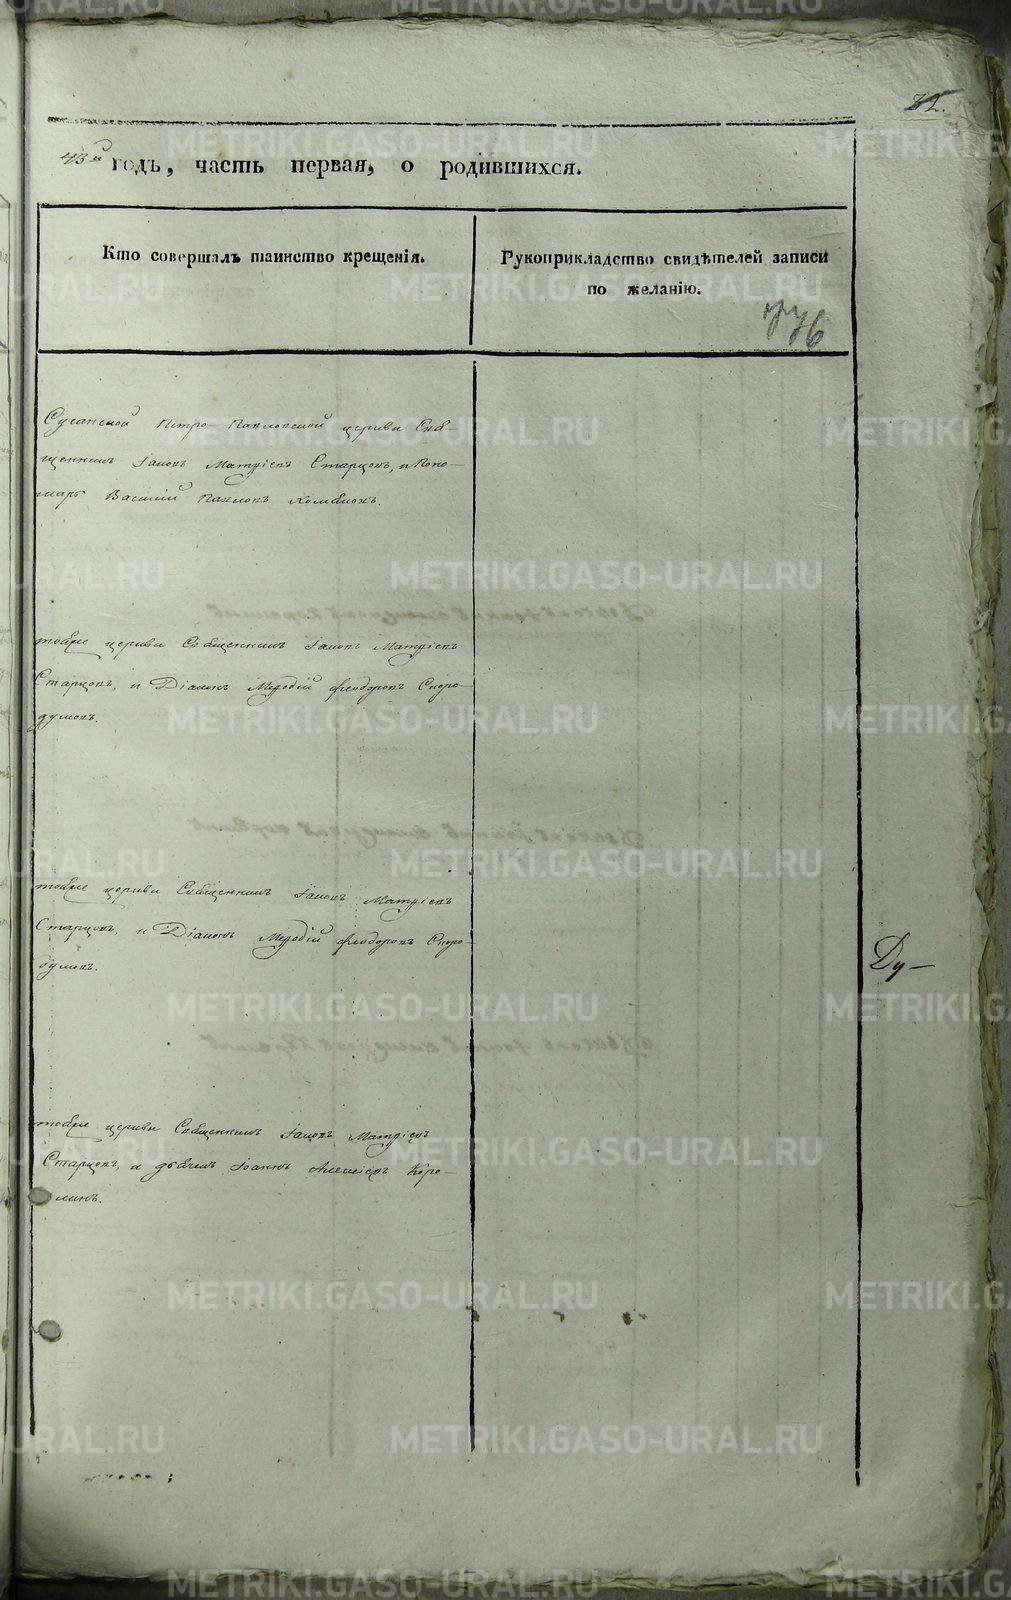 32.
43й годъ, часть первая, о родившихся.
Кто совершалъ таинство крещенія.
Рукоприкладство свидѣтелей записи
по желанію.
Сусанской Петро-Павловской церкви Свя-
щенникъ Іаковъ Матвіевъ Старцовъ, и Поно-
марь Василій Павловъ Хомяковъ.
тойже церкви Священникъ Іаковъ Матвіевъ
Старцовъ, и Діаконъ Меѳодій Ѳеодоровъ Скоро-
думовъ.
тойже церкви Священникъ Іаковъ Матвіевъ
Старцовъ, и Діаконъ Меѳодій Ѳеодоровъ Скоро-
думовъ.
Ду-
тойже церкви Священникъ Іаковъ Матвіевъ
Старцовъ, и дьячекъ Іоаннъ Алексіевъ Коро-
METRIKI.GASO-URAL.RU